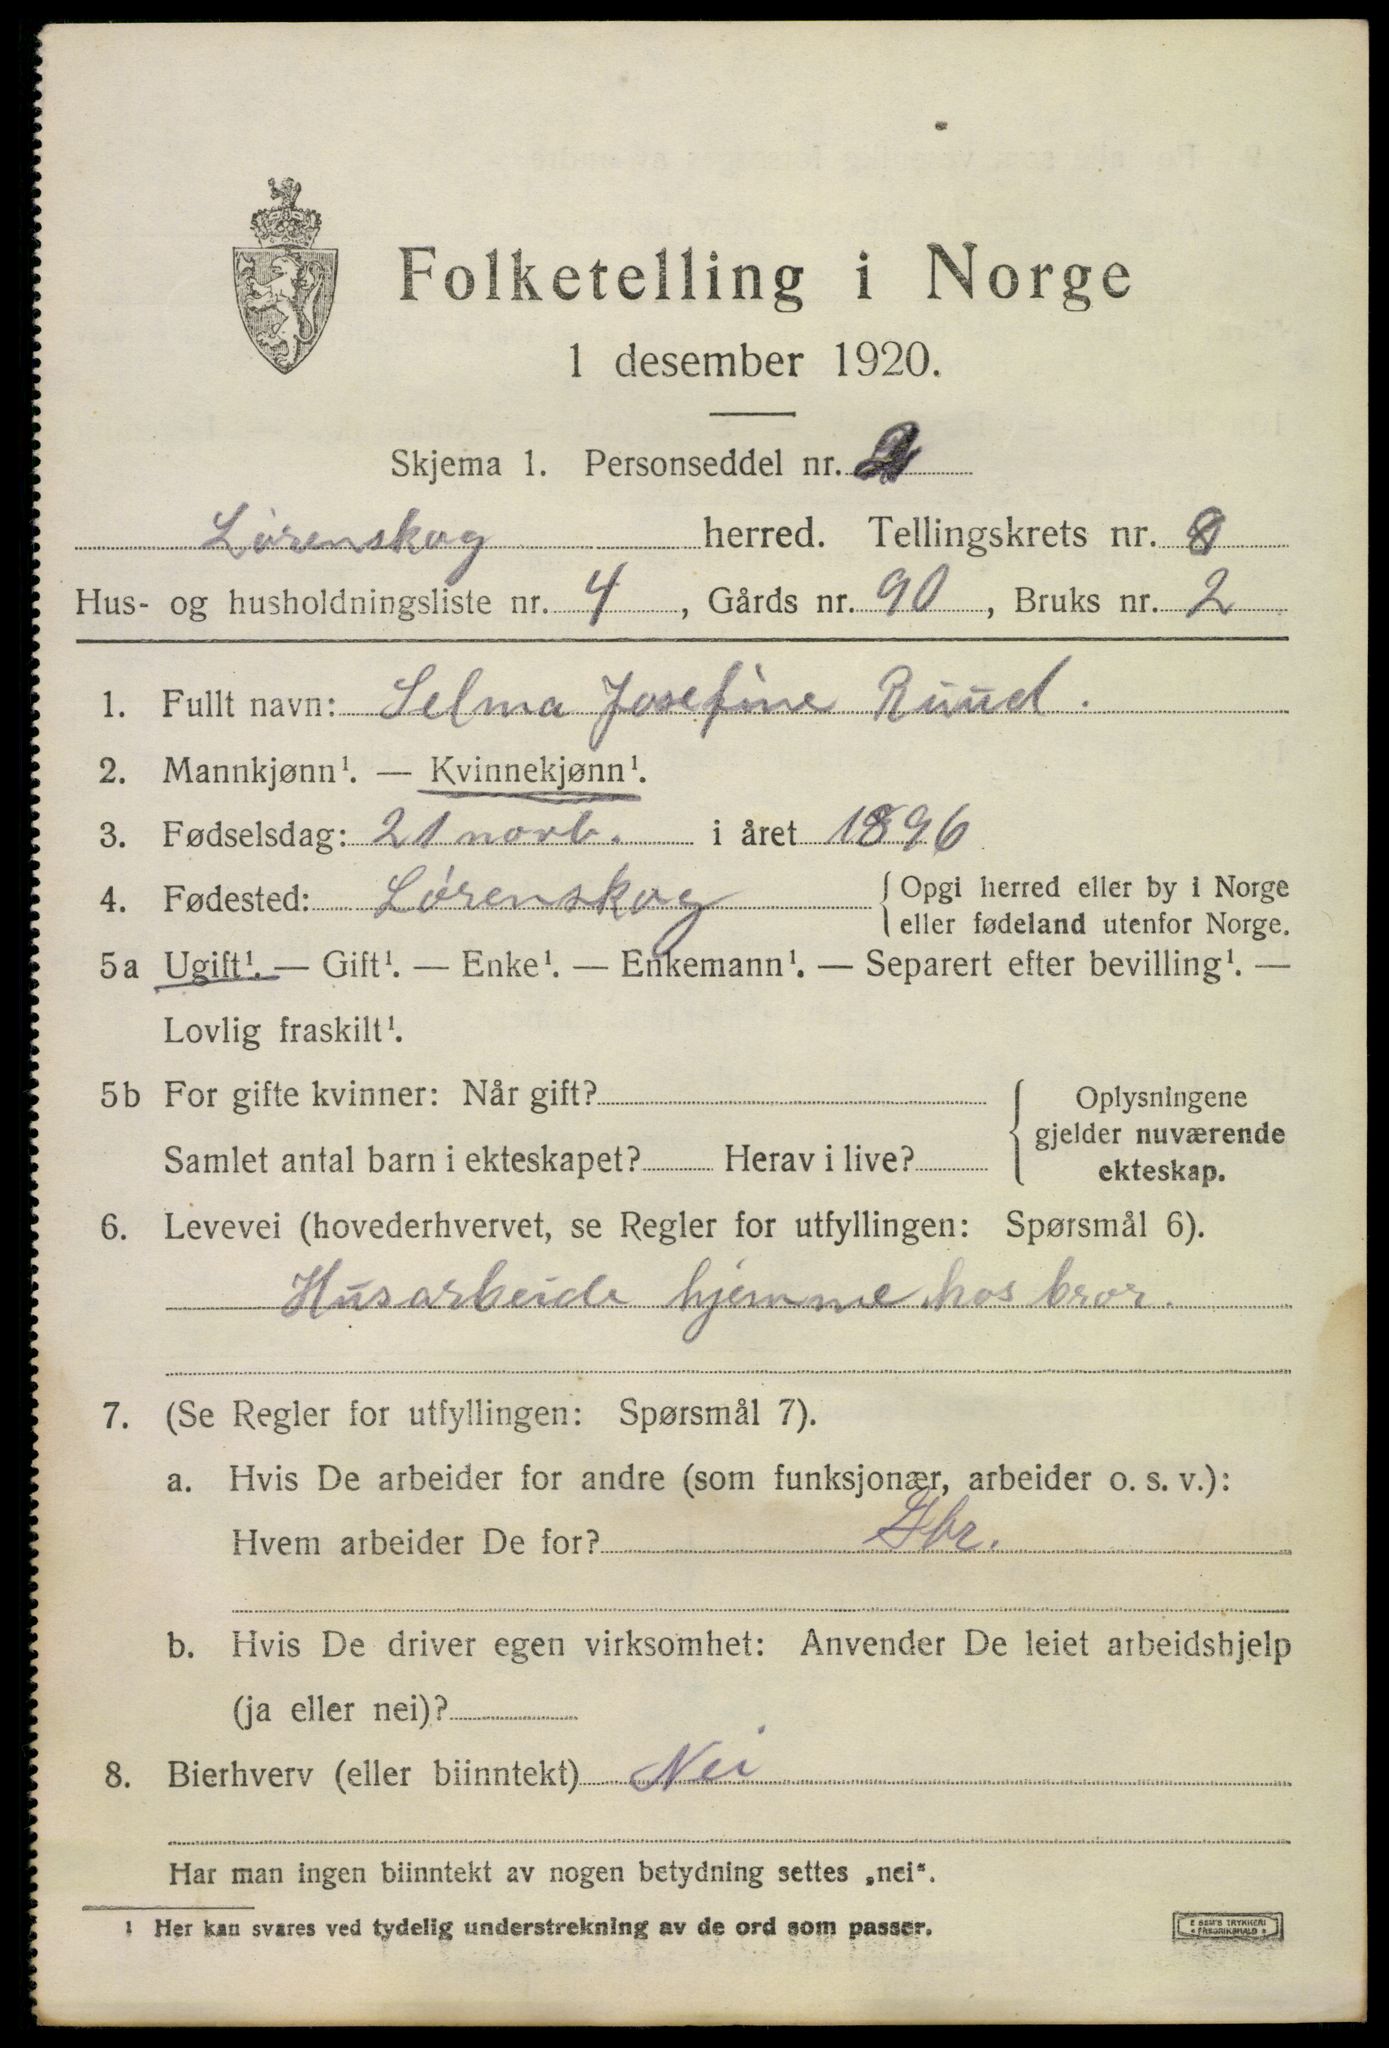 Folketelling i Norge
1 desember 1920.
Skjema 1. Personseddel nr. 2
Lørenskog herred. Tellingskrets nr. 8
Hus- og husholdningsliste nr. 4, Gårds nr. 90, Bruks nr. 2
1. Fullt navn: Selma Josefine Ruud.
2. Mannkjønn¹. — Kvinnekjønn¹.
3. Fødselsdag: 21 novb. i året 1896
4. Fødested: Lørenskog { Opgi herred eller by i Norge
eller fødeland utenfor Norge.
5a Ugift¹. — Gift¹. — Enke¹. — Enkemann¹. — Separert efter bevilling¹. —
Lovlig fraskilt¹.
5b For gifte kvinner: Når gift?
Samlet antal barn i ekteskapet? Herav i live?
{ Oplysningene
gjelder nuværende
ekteskap.
6. Levevei (hovederhvervet, se Regler for utfyllingen: Spørsmål 6).
Husarbeide hjemme hos bror.
7. (Se Regler for utfyllingen: Spørsmål 7).
a. Hvis De arbeider for andre (som funksjonær, arbeider o. s. v.):
Hvem arbeider De for? Gbr.
b. Hvis De driver egen virksomhet: Anvender De leiet arbeidshjelp
(ja eller nei)?
8. Bierhverv (eller biinntekt) Nei
Har man ingen biinntekt av nogen betydning settes „nei“.
1 Her kan svares ved tydelig understrekning av de ord som passer.
E SEM'S TRYKKERI
FREDRIKSHALD